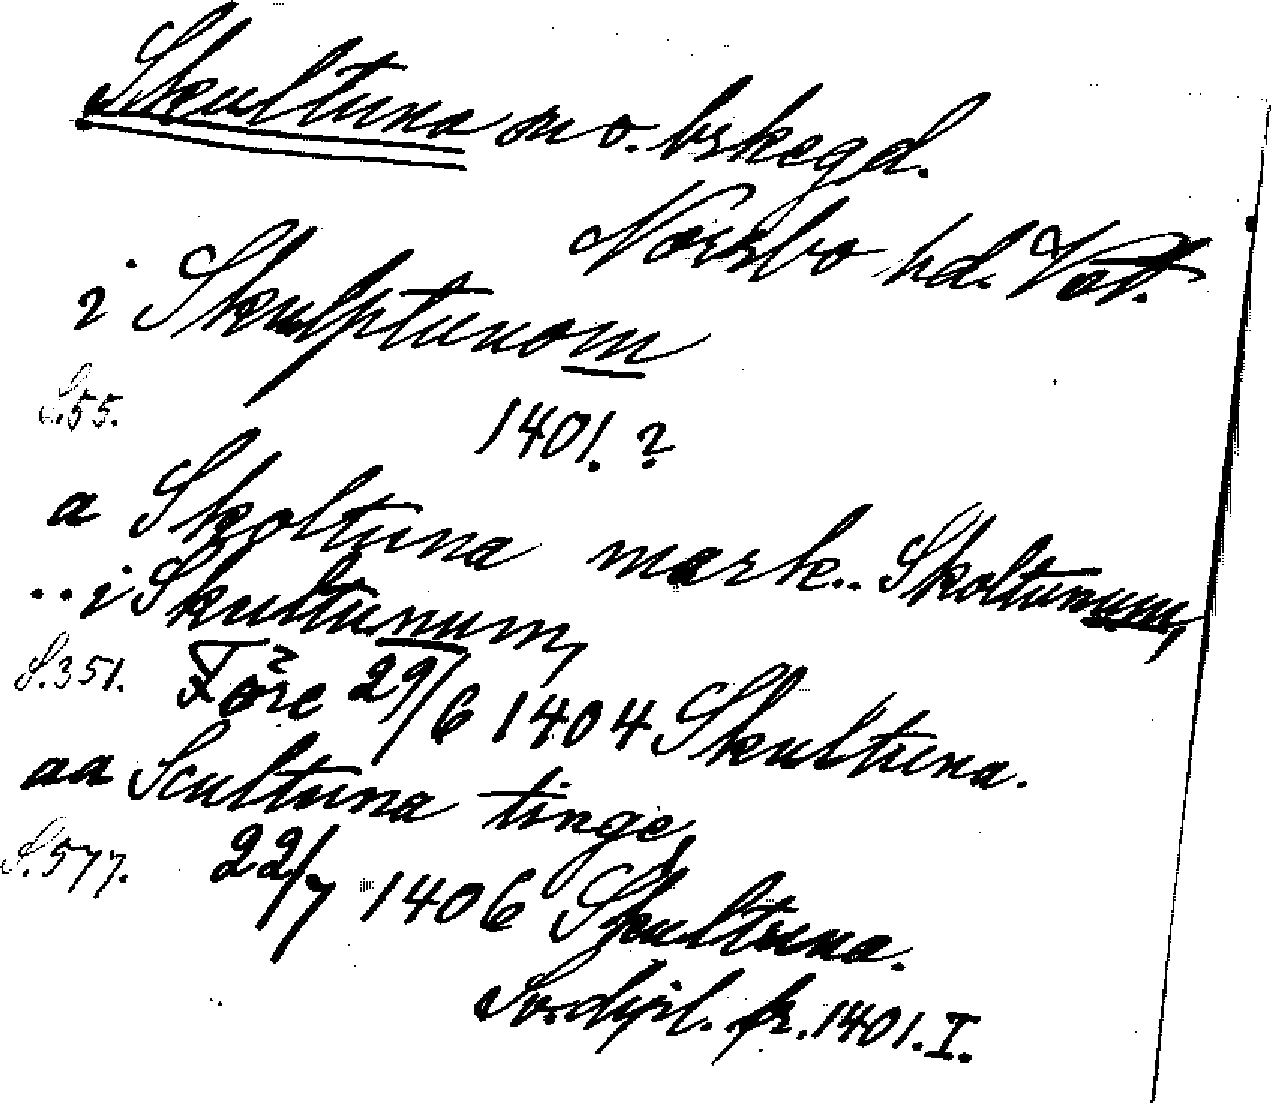 Skultuna sn o. brkegd.
Norrbo hd. Vstl.
i Skulptunom
S.55. 1401.?
a Skoltuna mark.. Skoltunum,
.. i Skultunum,
S.351. Före 29/6 1404 Skultuna.
aa Scultuna tinge,
S.577. 22/7 1406 Skultuna.
Sv.dipl. fr. 1401. I.